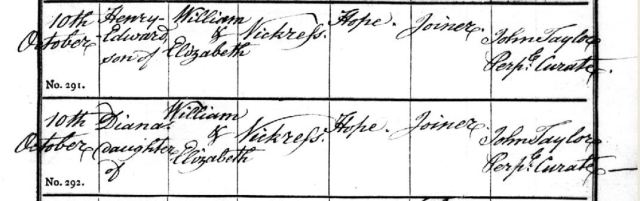 10th October Henry-Edward son of William & Elizabeth Vickress. Hope. Joiner. John Taylor Perp.l Curate.
No. 291.
10th October Diana daughter of William & Elizabeth Vickress. Hope. Joiner. John Taylor Perp.l Curate
No. 292.